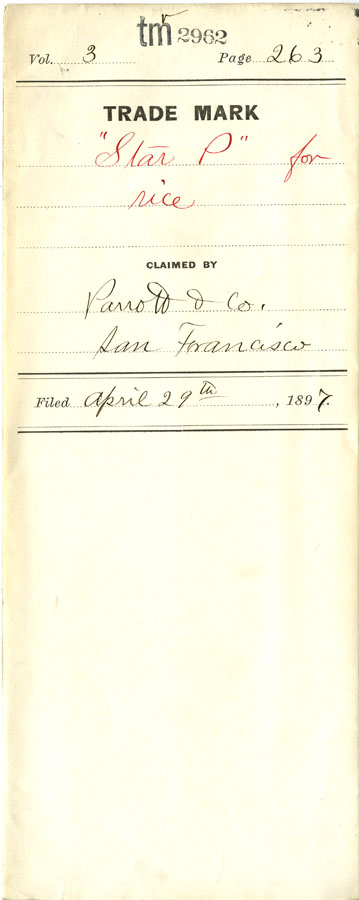 tm 2962
Vol. 3 Page 263
TRADE MARK
"Star P" for
rice
CLAIMED BY
Parrott & Co.
San Francisco
Filed April 29th, 1897.